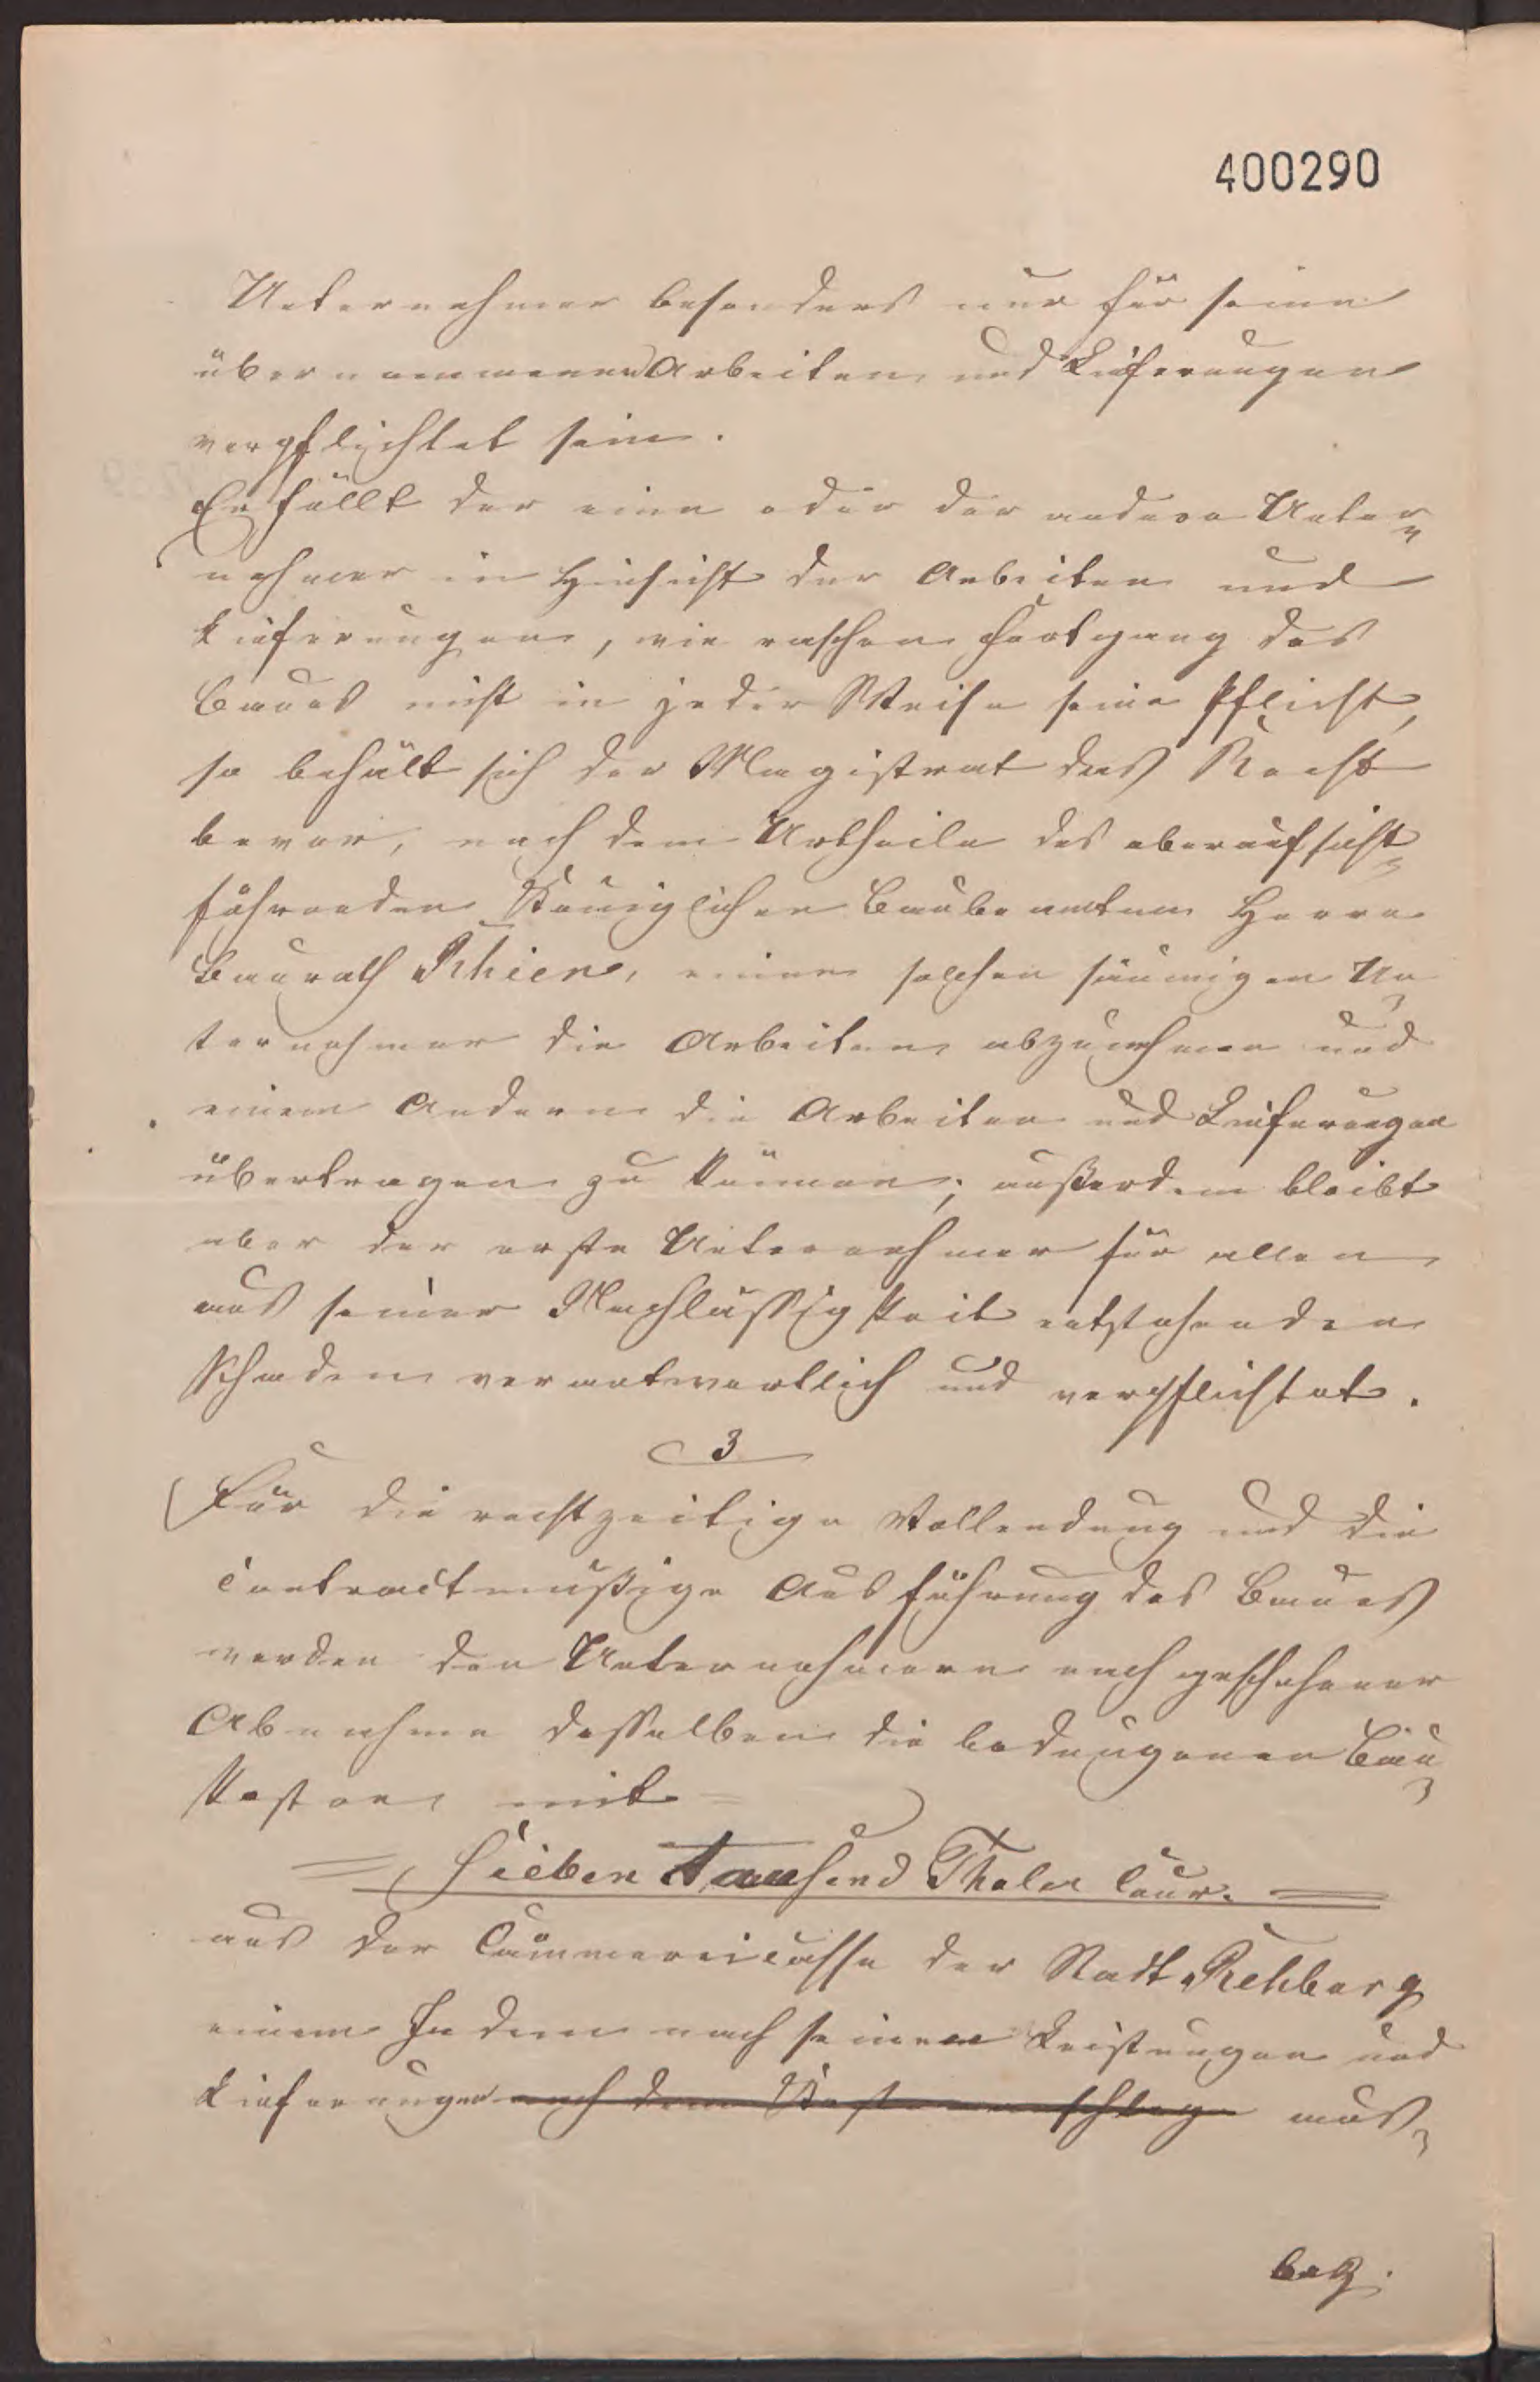 400290
Unternehmer besonders nur für seine
übernommenen Arbeiten und Lieferungen
verpflichtet sein.
Erfüllt der eine oder der andere Unter-
nehmer in Hinsicht der Arbeiten und
Lieferungen, wie raschen Fortgang des
Baues nicht in jeder Weise seine Pflicht,
so behält sich der Magistrat das Recht
bevor, nach dem Urtheile des oberaufsicht-
führenden Königlichen Baubeamten Herrn
Baurath Rhien, einen solchen säumigen Un-
ternehmer die Arbeiten abzunehmen und
einem Andern die Arbeiten und Lieferungen
übertragen zu können; außerdem bleibt
aber der erste Unternehmer für allen
aus seiner Nachlässigkeit entstehenden
Schaden verantwortlich und verpflichtet.
3
Für die rechtzeitige Vollendung und die
contractmäßige Ausführung des Baues
werden den Unternehmern nach geschehener
Abnahme desselben die bedungenen Bau-
kosten mit =
= Sieben Tausend Thaler Cour. =
aus der Cämmereicasse der Stadt Rehburg
einem Jeden nach seinen Leistungen und
Lieferungen nach dem Kostenanschlage aus-
bez.